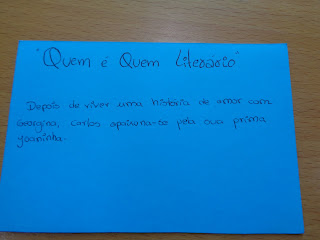 "Quem é Quem Literário"
Depois de viver uma história de amor com
Georgina, Carlos apaixona-se pela sua prima
Joaninha.